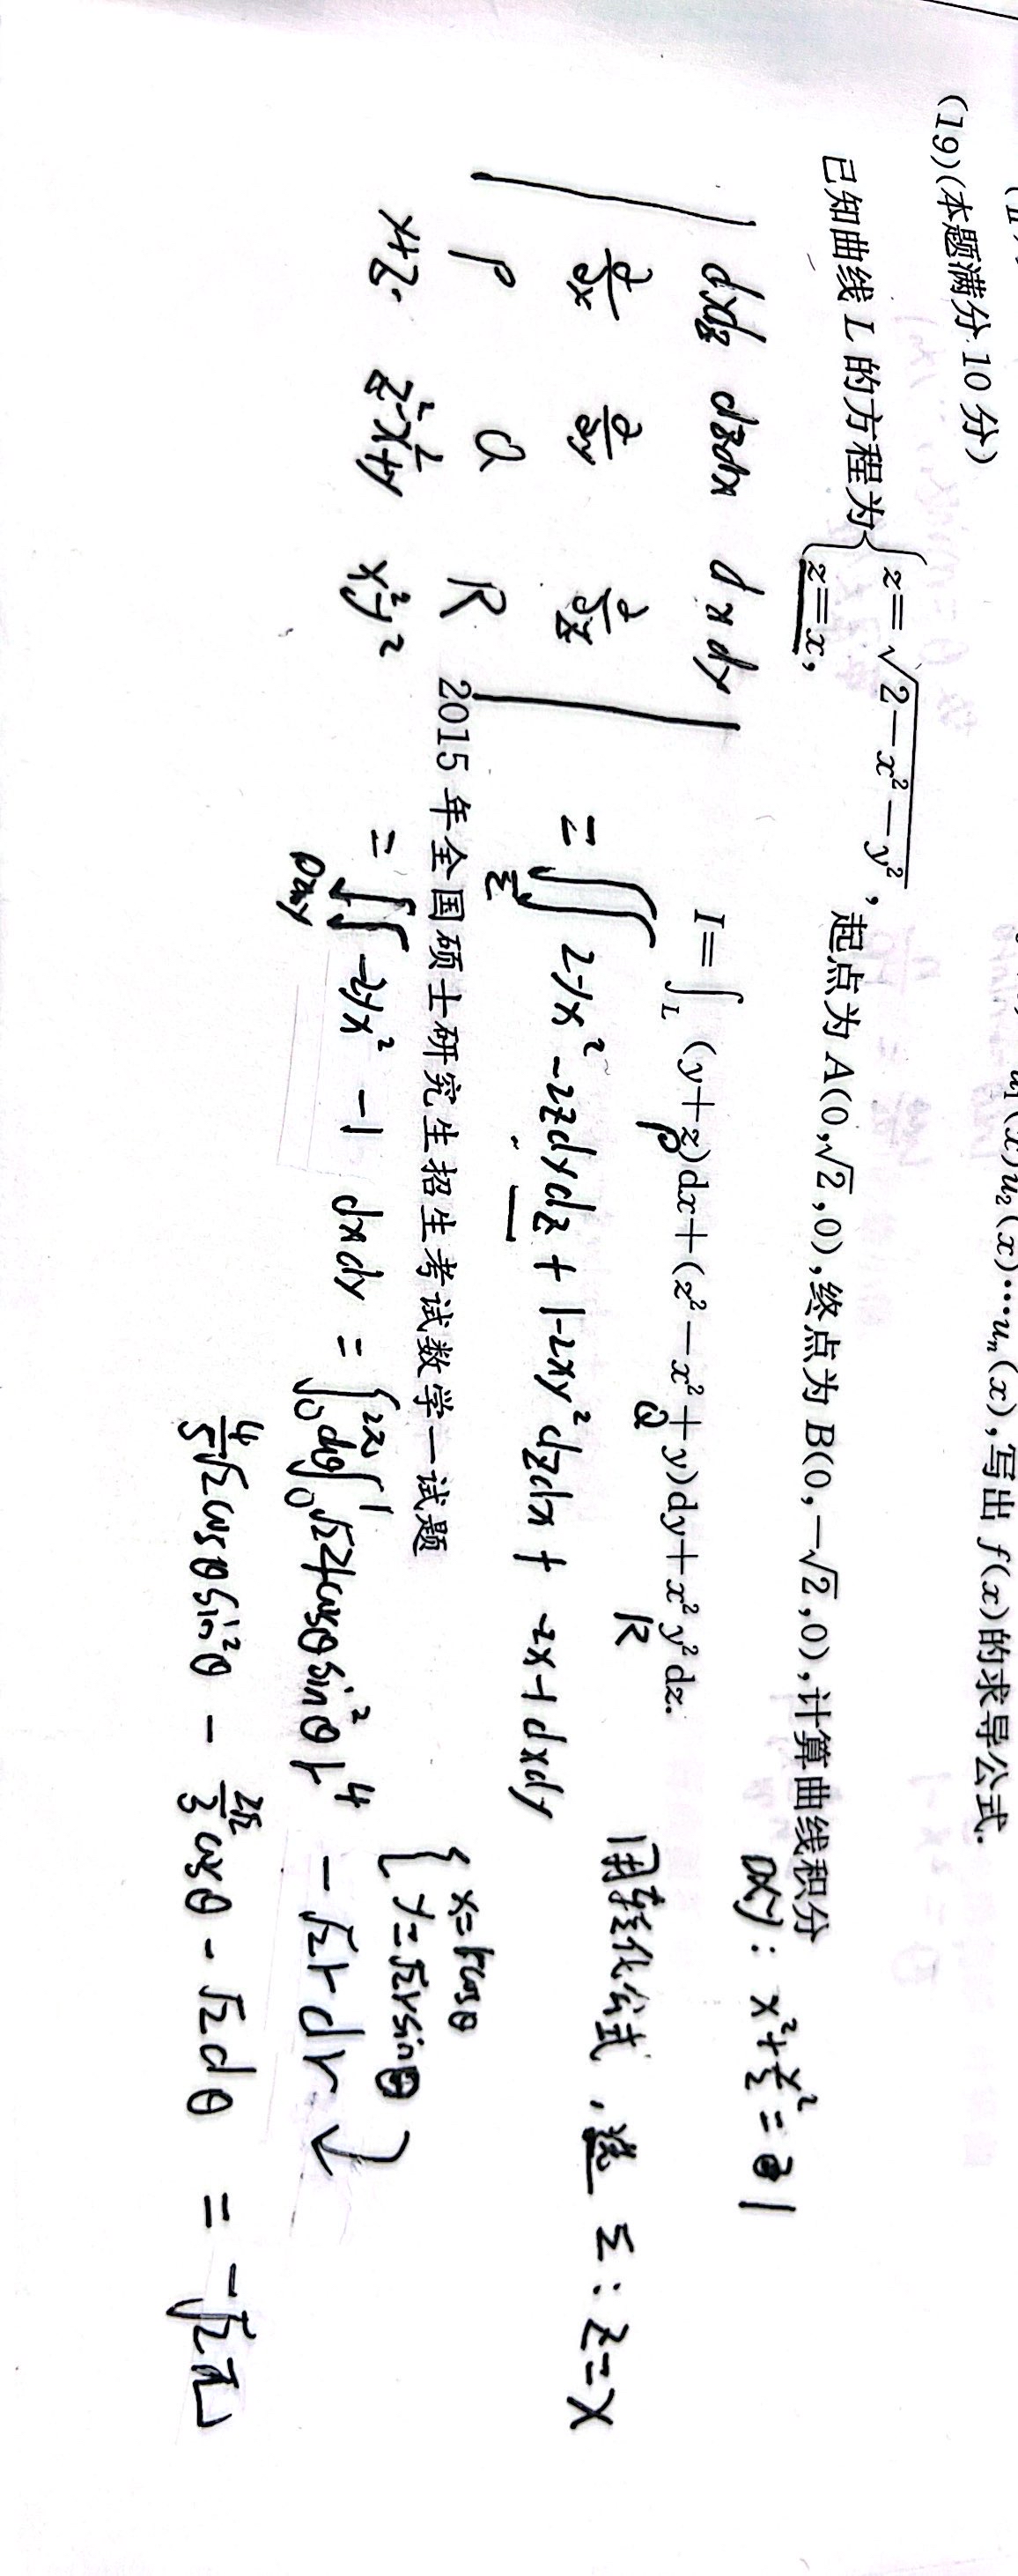 u₁(x)u₂(x)⋯uₙ(x),写出 f(x)的求导公式.
(19)(本题满分 10 分)
已知曲线 L 的方程为{z=√(2−x²−y²), z=x, 起点为 A(0,√2,0),终点为 B(0,−√2,0),计算曲线积分
I=∫_L (y+z)dx+(z²−x²+y)dy+x²y²dz.
P Q R
Dxy: x²+y²/2=1
用转化公式, Σ: z=x
| dydz dzdx dxdy |
| ∂/∂x ∂/∂y ∂/∂z |
| P Q R |
y+z z²-x²+y x²y²
= ∬_Σ 2yx²-2z dydz + 1-2xy² dzdx + -2x-1 dxdy
2015 年全国硕士研究生招生考试数学一试题
= ∬_Dxy -2yx² -1 dxdy = ∫₀^2π dθ ∫₀^1 √2 2+cosθsin²θ r⁴ - √2 r dr
{ x=rcosθ
y=√2rsinθ
4/5 √2 cosθsin²θ - 2√2/3 cosθ - √2 dθ = -√2π